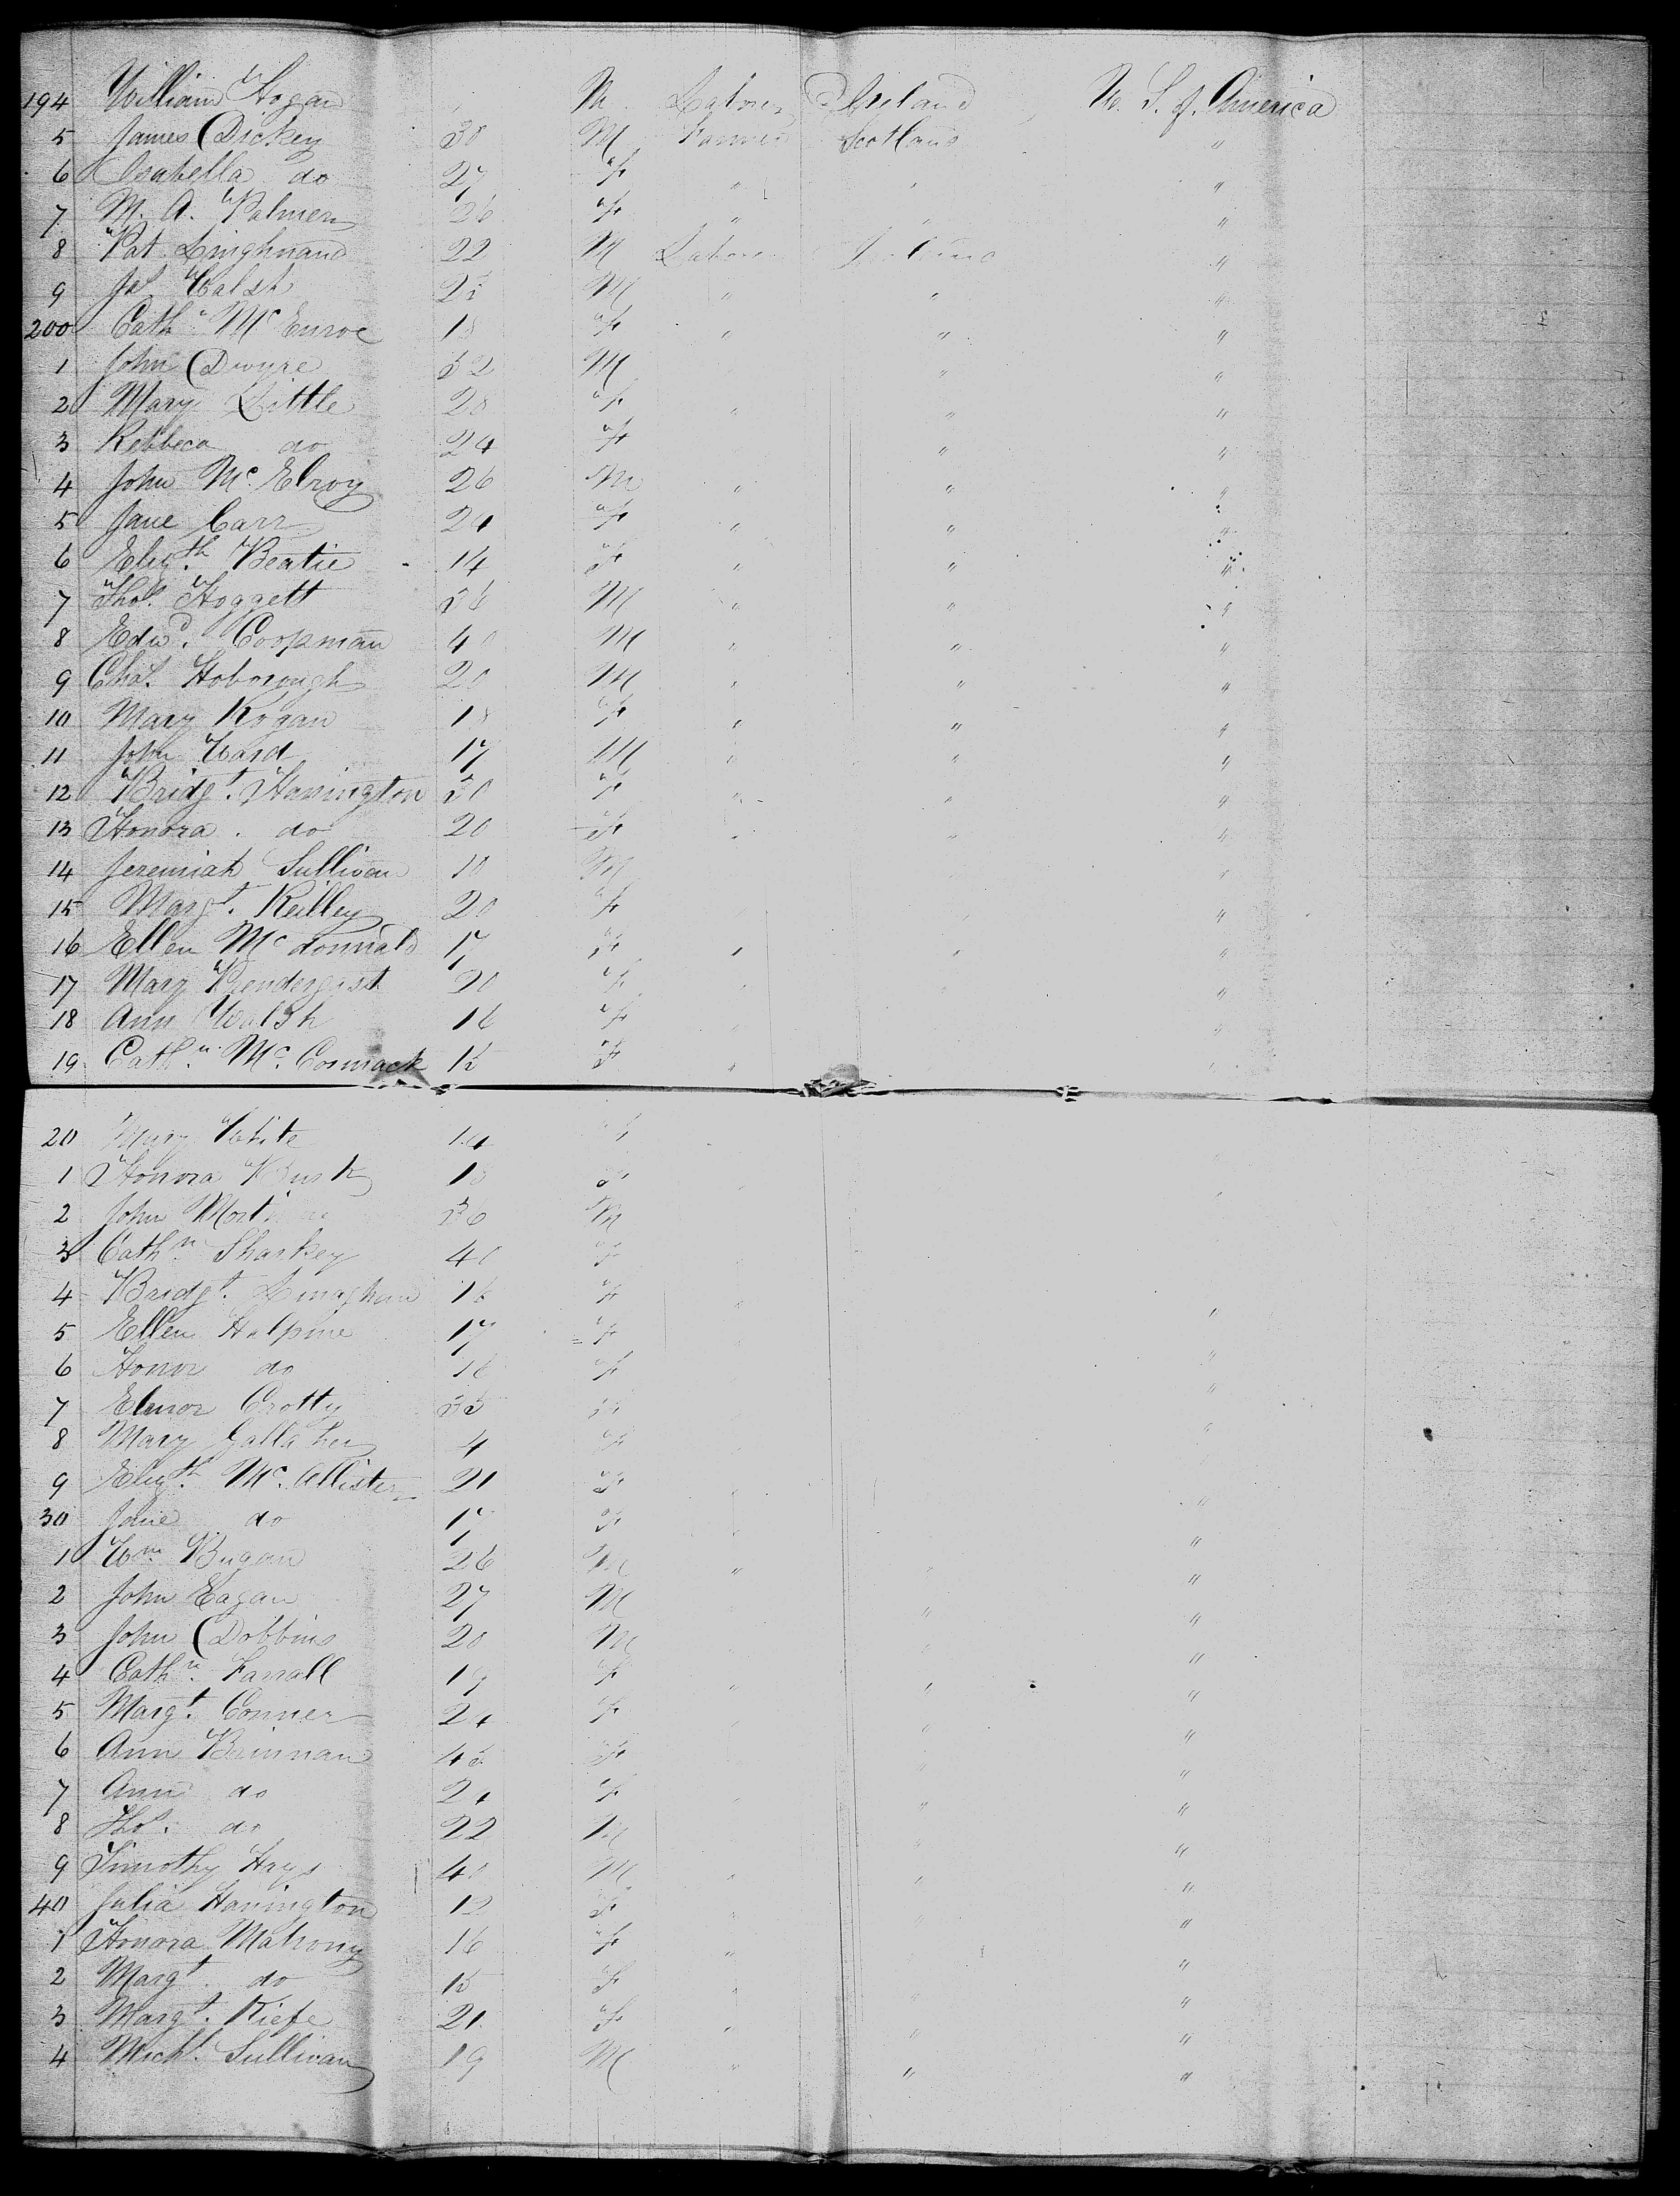 194 William Hogan M Laborer Ireland U. S. of America
5 James Dickey 30 M Farmer Scotland "
6 Isabella do 27 F " " "
7 M. A. Palmer 26 F " " "
8 Pat Linghnand 22 M Laborer Ireland "
9 Jas Walsh 25 M " " "
200 Cathe McEnroe 18 F " " "
1 John Dwyre 32 M " "
2 Mary Little 28 F " " "
3 Rebbeca do 24 F " "
4 John Mc Elroy 26 M " " "
5 Jane Carr 24 F " " "
6 Elizth Beatie 14 F " " "
7 Thos. Hoggett 36 M " " "
8 Edwd. Coopman 40 M " " "
9 Chas. Hoborough 20 M " " "
10 Mary Rogan 18 F " " "
11 John Ward 17 M " " "
12 Bridgt. Harrington 30 F " " "
13 Honora do 20 F " " "
14 Jeremiah Sullivan 10 M "
15 Margt. Reilley 20 F "
16 Ellen Mc donnald 17 F " " "
17 Mary Prendergast 20 F " " "
18 Ann Walsh 16 F " "
19 Cathn. Mc. Cormack 15 F " "
20 Mary White 14 F
1 Honora 18 F
2 John 36 M
3 Cathn. Sharkey 40 F
4 Bridgt. Linaghan 16 F "
5 Ellen Halpine 17 F "
6 Honor do 16 F "
7 Elenor Crotty 35 F "
8 Mary Gallaher 4 F
9 Elizth. Mc. Allister 21 F "
30 Jane do 17 F "
1 Wm. Bugan 26 M " "
2 John Eagan 27 M " "
3 John Dobbins 20 M "
4 Cathn. Farrall 19 F " " "
5 Margt. Conner 24 F "
6 Ann Brinnan 45 F "
7 Ann do 24 F " "
8 Thos. do 22 M "
9 Timothy Hays 40 M " " "
40 Julia Harrington 12 F " "
1 Honora Mahony 16 F " "
2 Margt. do 15 F " "
3 Margt. Kiefe 21 F " " "
4 Michl. Sullivan 19 M " " "